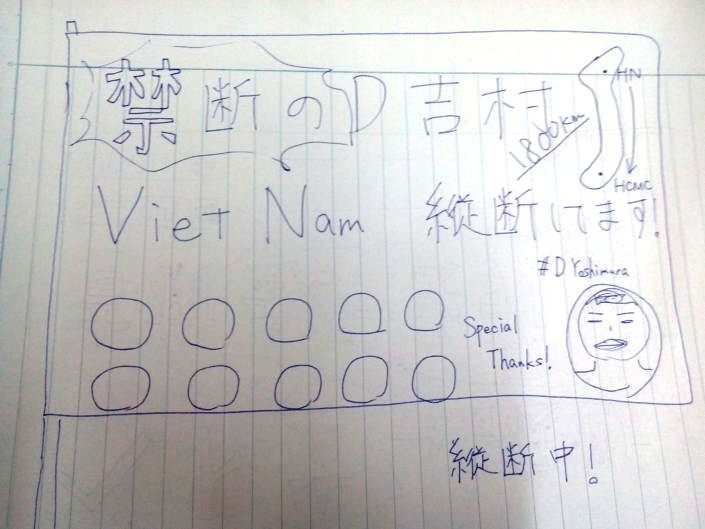 禁断のD 吉村
1800km
HN
HCMC
Viet Nam 縦断してます!
#D Yoshimura
Special
Thanks!
縦断中!